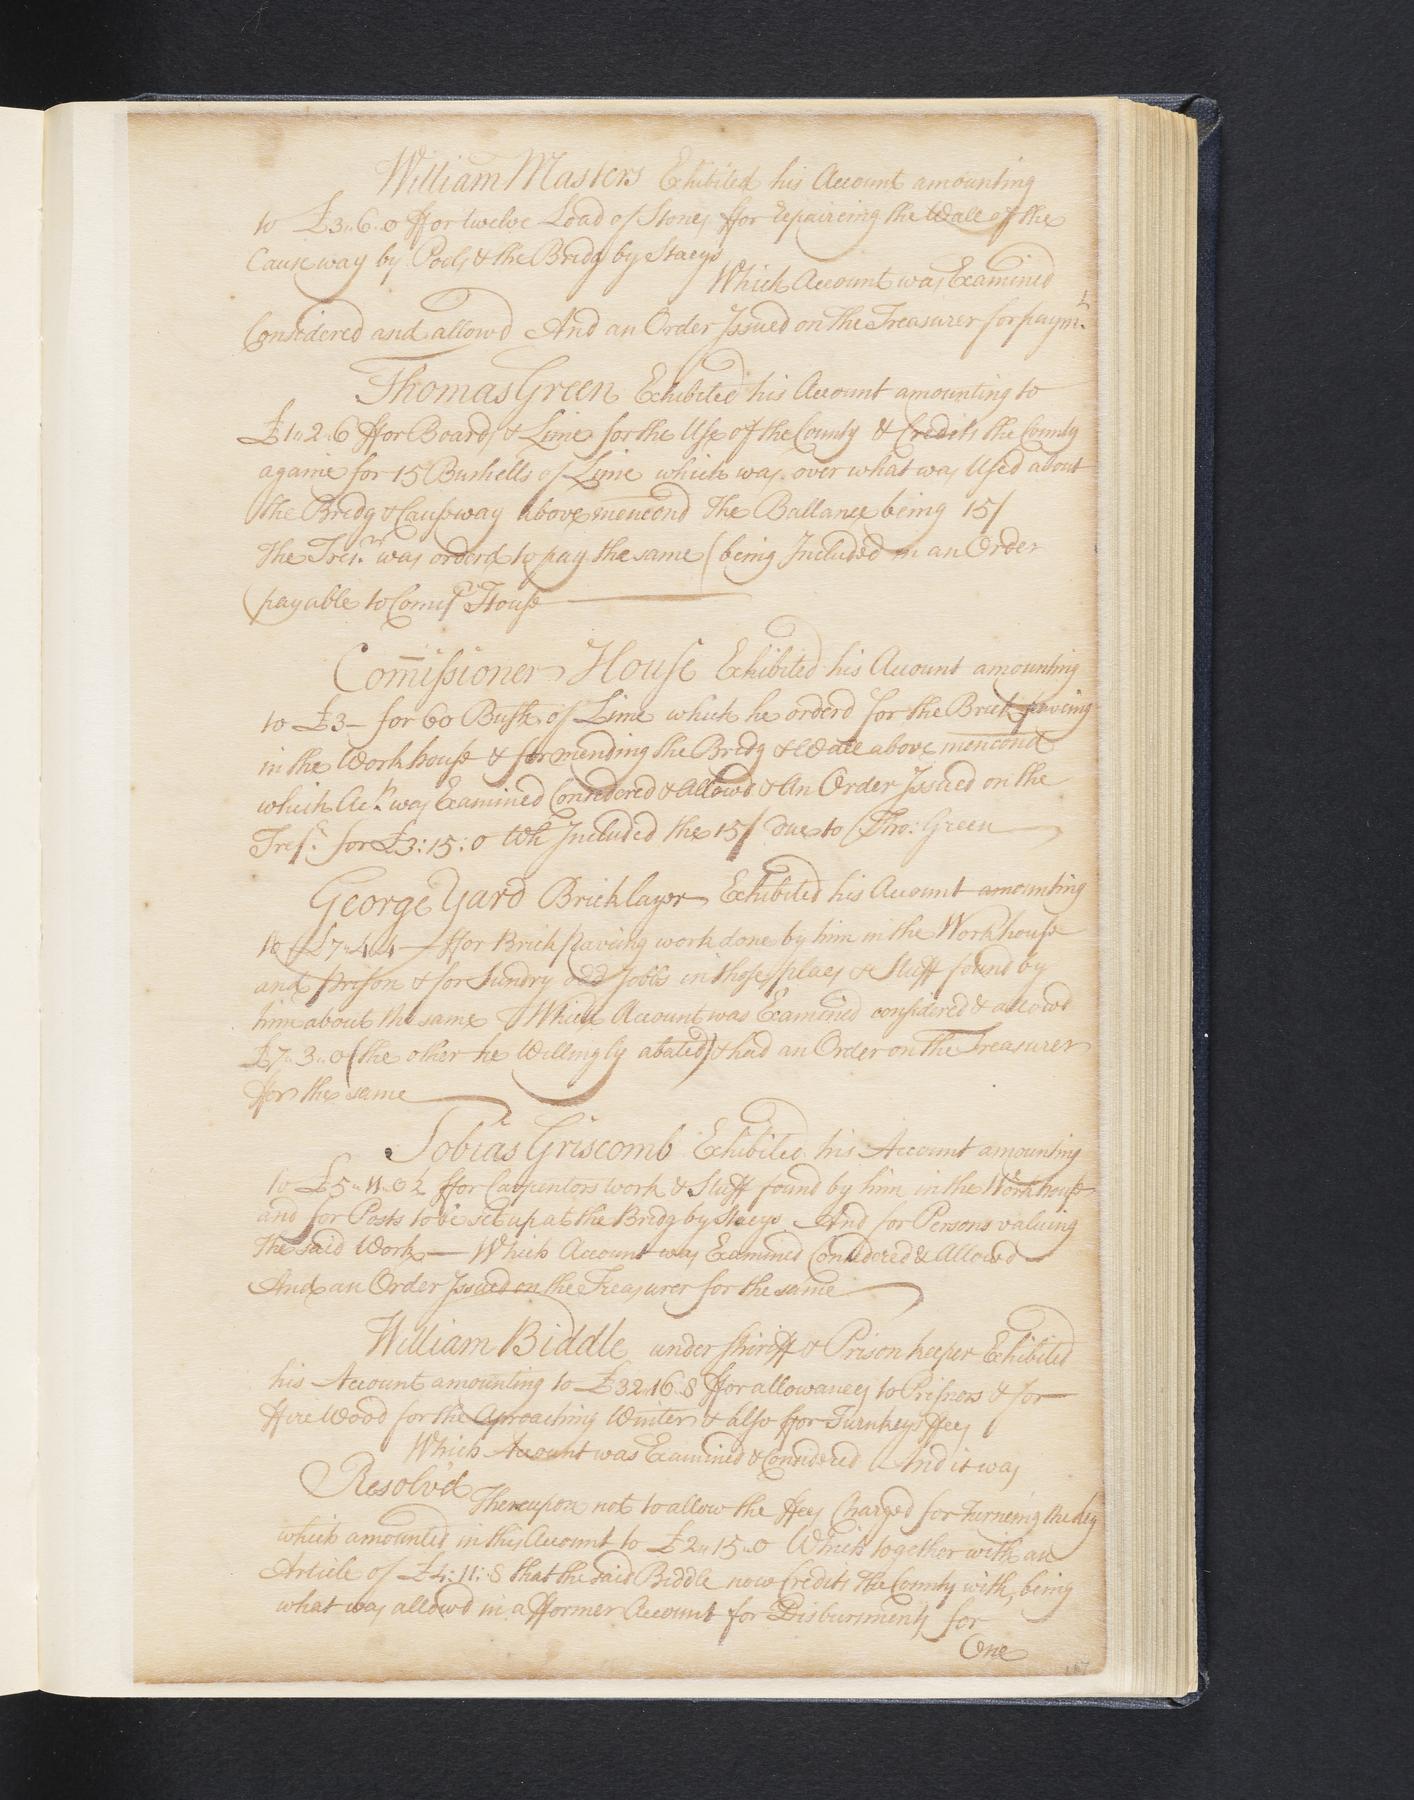 William Masters Exhibited his Account amounting
to £3.,6.,0 ffor twelve Load of Stones ffor repaireing the Wall of the
Causeway by Pools & the Bridg by Staeys
Which Account was Examined
Considered and allowd And an Order Issued on the Treasurer for paymt.
Thomas Green Exhibited his Account amounting to
£1.,2.,6 ffor Boards & Lime for the Use of the County & Credits the County
againe for 15 Bushells of Lime which was over what was Used about
the Bridg & Causway above mencond The Ballance being 15/
The Tresr. was orderd to pay the same (being Included in an Order
payable to Comisr House
Com̅issioner House Exhibited his Account amounting
to £3– for 60 Bush. of Lime which he orderd for the Brick paving
in the Workhouse & for mending the Bridg & Wall above mencond
which Act. was Examined Considered & Allowd & An Order Issued on the
Tresr. for £3:15:0 Wh Included the 15/ due to Tho: Green
George Yard Bricklayer Exhibited his Account amounting
to £7.,4.,1 – ffor Brick paveing work done by him in the Workhouse
and prison & for Sundry odd Jobbs in those places & Stuff found by
him about the same Which Account was Examined considered & allowd
£7.,3.,0 (the other he Willingly abated) & had an Order on The Treasurer
ffor the same
Tobias Griscomb Exhibited his Account amounting
to £5.,11.,0½ ffor Carpentors work & Stuff found by him in the Workhouse
and for Posts to be set up at the Bridg by Staeys And for Persons valuing
The said Work — Which Account was Examined Considered & Allowd
And an Order Issued on the Treasurer for the same
William Biddle under Shiriff & Prison keeper Exhibited
his Account amounting to £32.,16.,8 ffor allowances to Prisners & for
ffire Wood for the Aproaching Winter & also ffor Turnkeys ffees
Which Account was Examined & Considered And it was
Resolv'd
Thereupon not to allow the ffees Charged for Turneing the key
which amounted in this Account to £2.,15.,0 Which together with an
Article of £4:11:8 that the said Biddle now Credits the County with, being
what was allowd in a fformer Account for Disbursments for
One
167